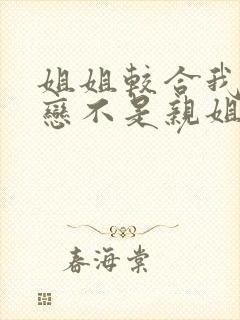 姐姐較合我
戀不是親姐
春海棠